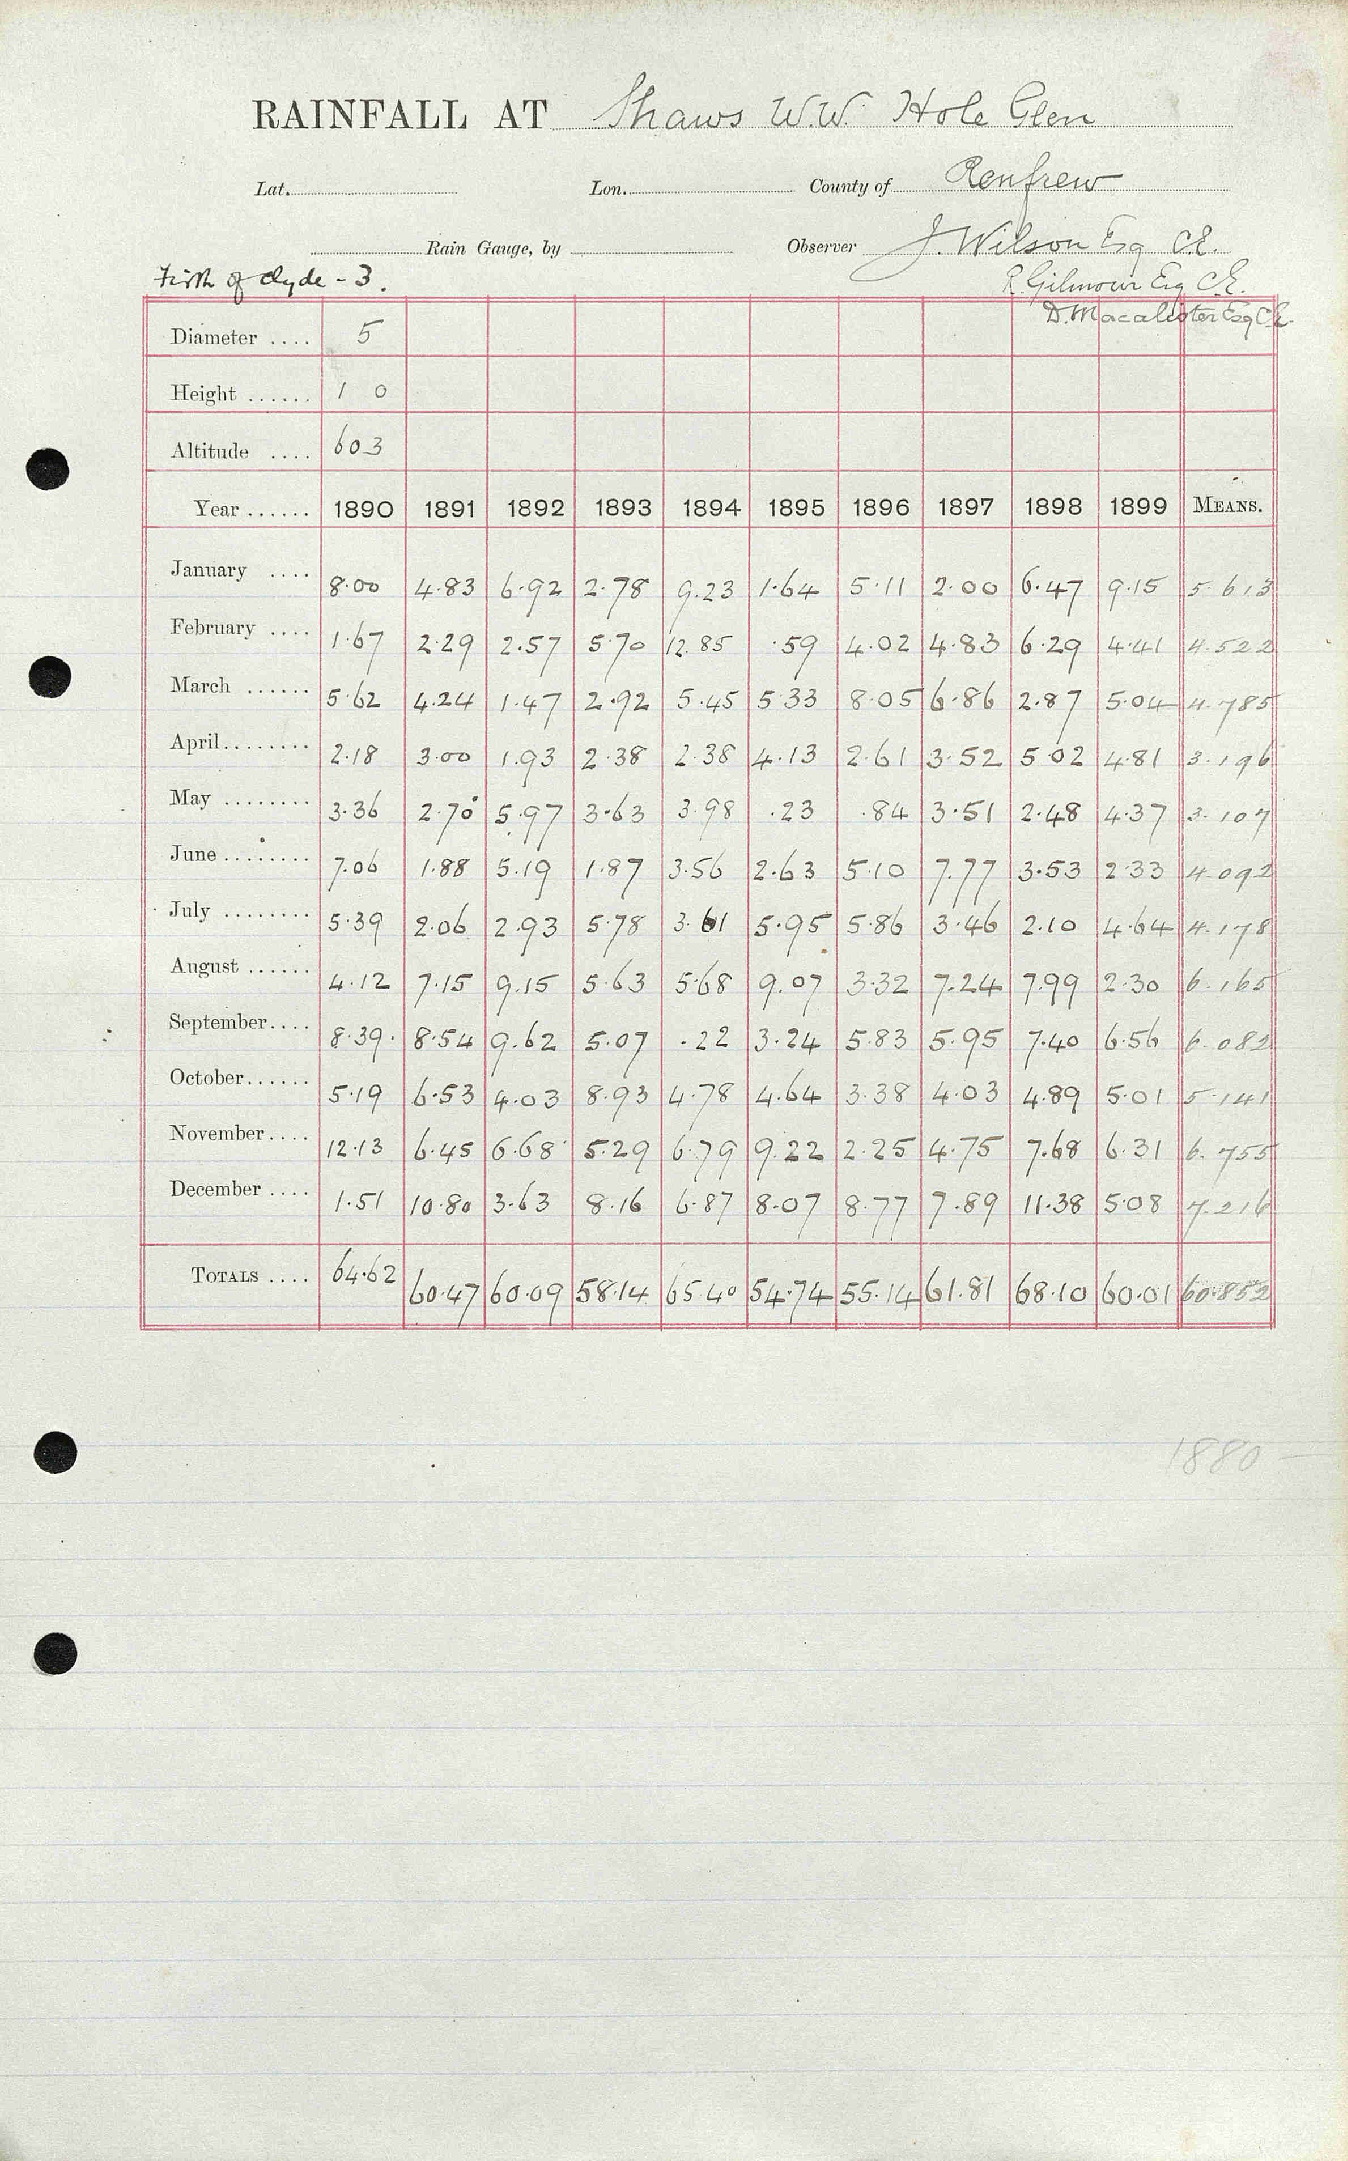 RAINFALL AT Shaws W.W. Hole Glen
Lat. Lon. County of Renfrew
Rain Gauge, by Observer J. Wilson Esq C.E.
Firth of Clyde - 3. R. Gilmour Esq C.E.
D. Macalister Esq C.E.
Diameter .... 5
Height ...... 1 0
Altitude .... 603
Year ...... 1890 1891 1892 1893 1894 1895 1896 1897 1898 1899 MEANS.
January .... 8.00 4.83 6.92 2.78 9.23 1.64 5.11 2.00 6.47 9.15 5.613
February .... 1.67 2.29 2.57 5.70 12.85 .59 4.02 4.83 6.29 4.41 4.522
March ...... 5.62 4.24 1.47 2.92 5.45 5.33 8.05 6.86 2.87 5.04 4.785
April........ 2.18 3.00 1.93 2.38 2.38 4.13 2.61 3.52 5.02 4.81 3.196
May ........ 3.36 2.70 5.97 3.63 3.98 .23 .84 3.51 2.48 4.37 3.107
June ........ 7.06 1.88 5.19 1.87 3.56 2.63 5.10 7.77 3.53 2.33 4.092
July ........ 5.39 2.06 2.93 5.78 3.61 5.95 5.86 3.46 2.10 4.64 4.178
August ...... 4.12 7.15 9.15 5.63 5.68 9.07 3.32 7.24 7.99 2.30 6.165
September.... 8.39 8.54 9.62 5.07 .22 3.24 5.83 5.95 7.40 6.56 6.082
October...... 5.19 6.53 4.03 8.93 4.78 4.64 3.38 4.03 4.89 5.01 5.141
November.... 12.13 6.45 6.68 5.29 6.79 9.22 2.25 4.75 7.68 6.31 6.755
December .... 1.51 10.80 3.63 8.16 6.87 8.07 8.77 7.89 11.38 5.08 7.216
TOTALS .... 64.62 60.47 60.09 58.14 65.40 54.74 55.14 61.81 68.10 60.01 60.852
1880 —